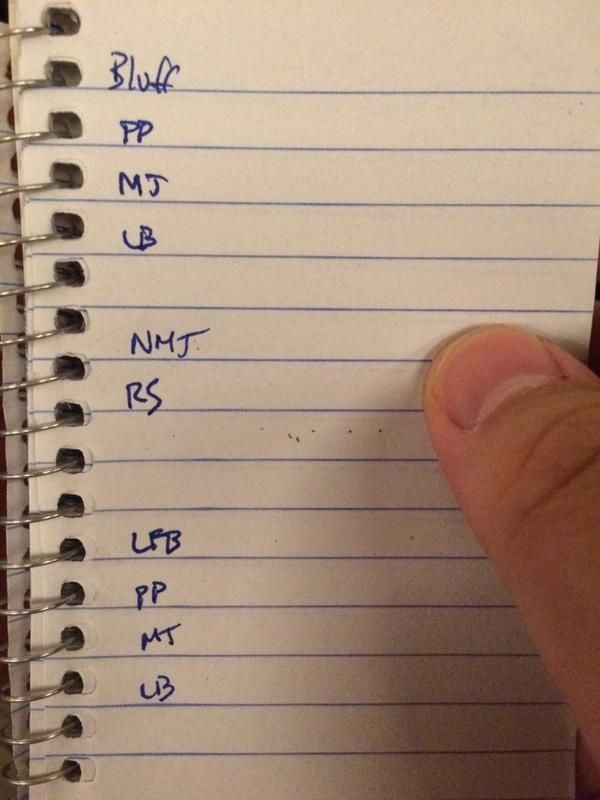 Bluff
PP
MJ
LB
NMJ
RS
LFB
PP
MJ
LB